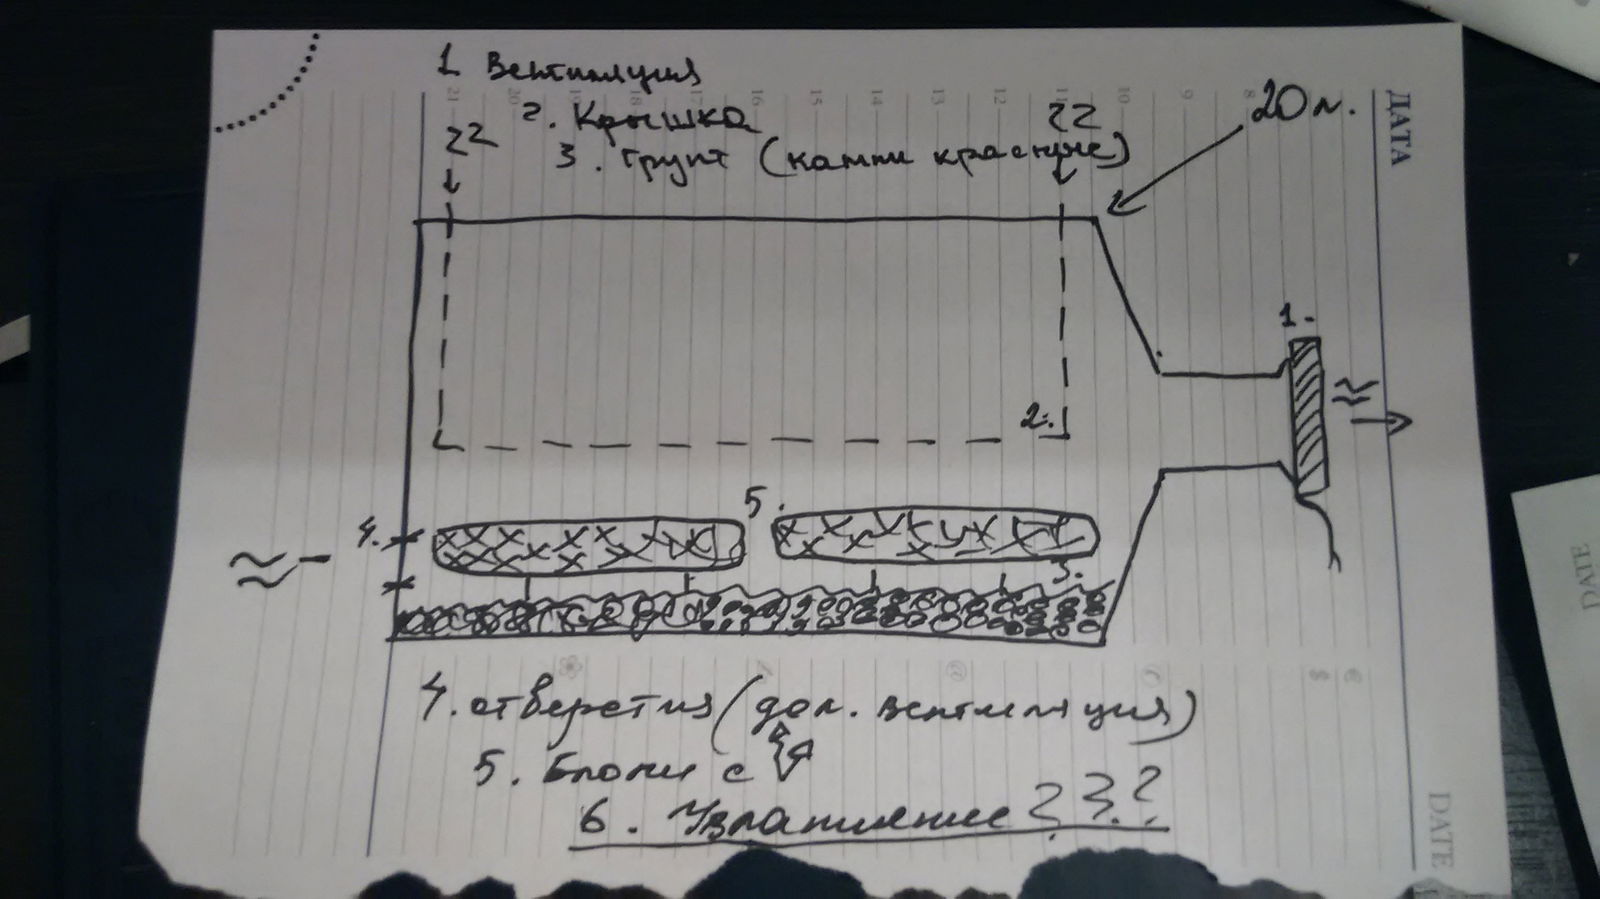 1 Вентиляция
2. Крышка
3. Грунт (камни красные)
22
22
20 л.
21 20 19 18 17 16 15 14 13 12 11 10 9 8
ДАТА
1.
2.
5.
4.
3.
4. отверстия (доп. вентиляция)
5. Блоки с
6. Увлажнение ? 3. ?
€
$
@
DATE
DATE